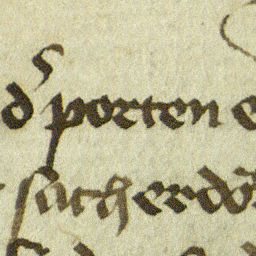 ds porten
sacherdo